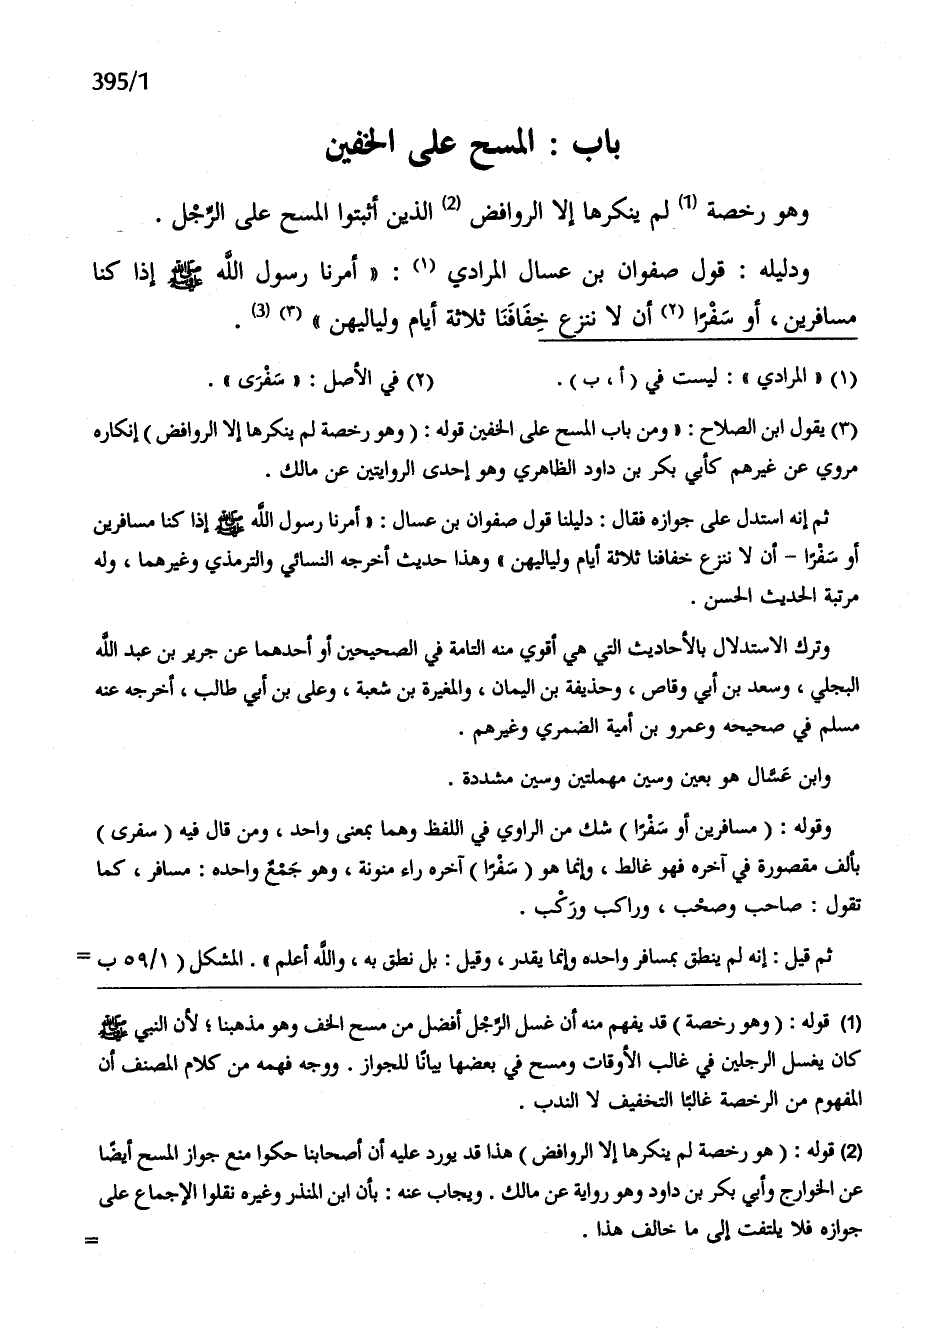 395/1
باب : المسح على الخفين
وهو رخصة (1) لم ينكرها إلا الروافض (2) الذين أثبتوا المسح على الرِّجْل .
ودليله : قول صفوان بن عسال المرادي (١) : « أمرنا رسول اللَّه ﷺ إذا كنا
مسافرين ، أو سَفْرًا (٢) أن لا ننزع خِفَافَنَا ثلاثة أيام ولياليهن » (٣) (3) .
(١) « المرادي » : ليست في ( أ ، ب ) . (٢) في الأصل : « سَفْرَى » .
(٣) يقول ابن الصلاح : « ومن باب المسح على الخفين قوله : ( وهو رخصة لم ينكرها إلا الروافض ) إنكاره
مروي عن غيرهم كأبي بكر بن داود الظاهري وهو إحدى الروايتين عن مالك .
ثم إنه استدل على جوازه فقال : دليلنا قول صفوان بن عسال : « أمرنا رسول اللَّه ﷺ إذا كنا مسافرين
أو سَفْرًا – أن لا ننزع خفافنا ثلاثة أيام ولياليهن » وهذا حديث أخرجه النسائي والترمذي وغيرهما ، وله
مرتبة الحديث الحسن .
وترك الاستدلال بالأحاديث التي هي أقوي منه التامة في الصحيحين أو أحدهما عن جرير بن عبد اللَّه
البجلي ، وسعد بن أبي وقاص ، وحذيفة بن اليمان ، والمغيرة بن شعبة ، وعلى بن أبي طالب ، أخرجه عنه
مسلم في صحيحه وعمرو بن أمية الضمري وغيرهم .
وابن عَسَّال هو بعين وسين مهملتين وسين مشددة .
وقوله : ( مسافرين أو سَفْرًا ) شك من الراوي في اللفظ وهما بمعنى واحد ، ومن قال فيه ( سفرى )
بألف مقصورة في آخره فهو غالط ، وإنما هو ( سَفْرًا ) آخره راء منونة ، وهو جَمْعٌ واحده : مسافر ، كما
تقول : صاحب وصحْب ، وراكب ورَكْب .
ثم قيل : إنه لم ينطق بمسافر واحده وإنما يقدر ، وقيل : بل نطق به ، واللَّه أعلم » . المشكل ( ٥٩/١ ب =
(1) قوله : ( وهو رخصة ) قد يفهم منه أن غسل الرِّجْل أفضل من مسح الخف وهو مذهبنا ؛ لأن النبي ﷺ
كان يغسل الرجلين في غالب الأوقات ومسح في بعضها بيانًا للجواز . ووجه فهمه من كلام المصنف أن
المفهوم من الرخصة غالبًا التخفيف لا الندب .
(2) قوله : ( هو رخصة لم ينكرها إلا الروافض ) هذا قد يورد عليه أن أصحابنا حكوا منع جواز المسح أيضًا
عن الخوارج وأبي بكر بن داود وهو رواية عن مالك . ويجاب عنه : بأن ابن المنذر وغيره نقلوا الإجماع على
جوازه فلا يلتفت إلى ما خالف هذا .
=